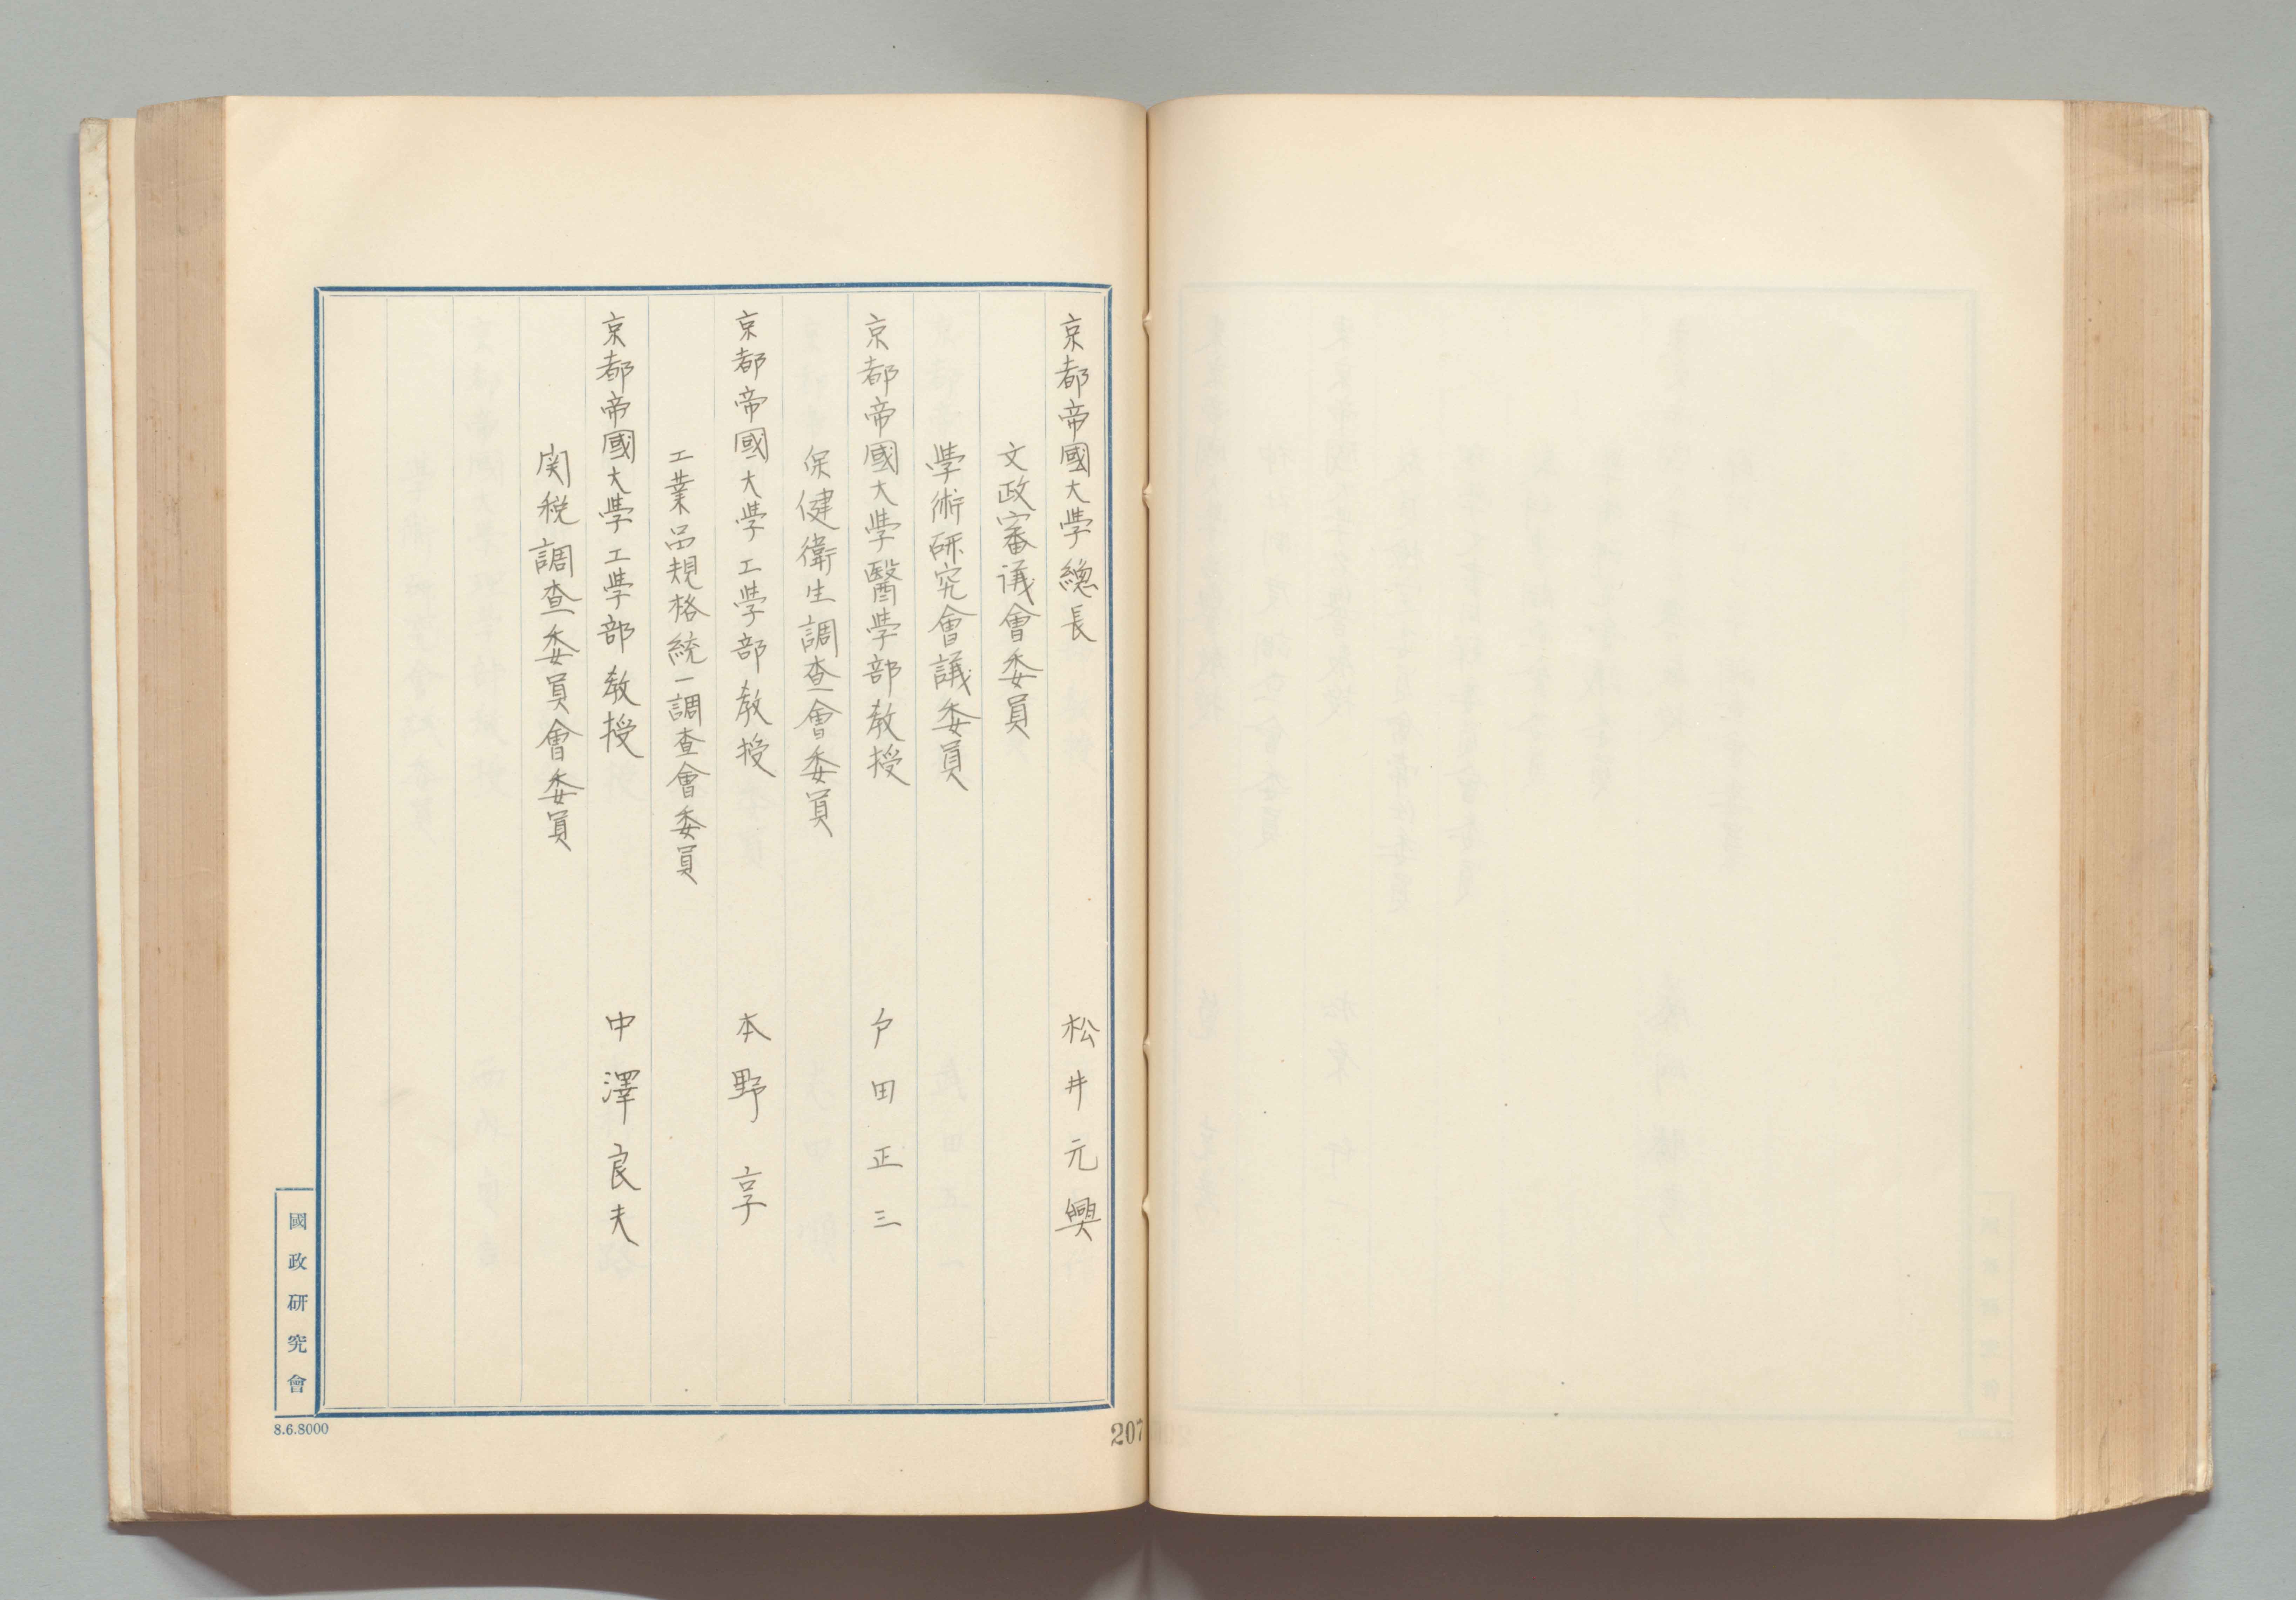 京都帝國大學總長 松井元興
文政審議會委員
學術研究會議委員
京都帝國大學醫學部教授 戸田正三
保健衛生調査會委員
京都帝國大學工學部教授 本野亨
工業品規格統一調査會委員
京都帝國大學工學部教授 中澤良夫
関税調査委員會委員
國政研究會
8.6.8000
207